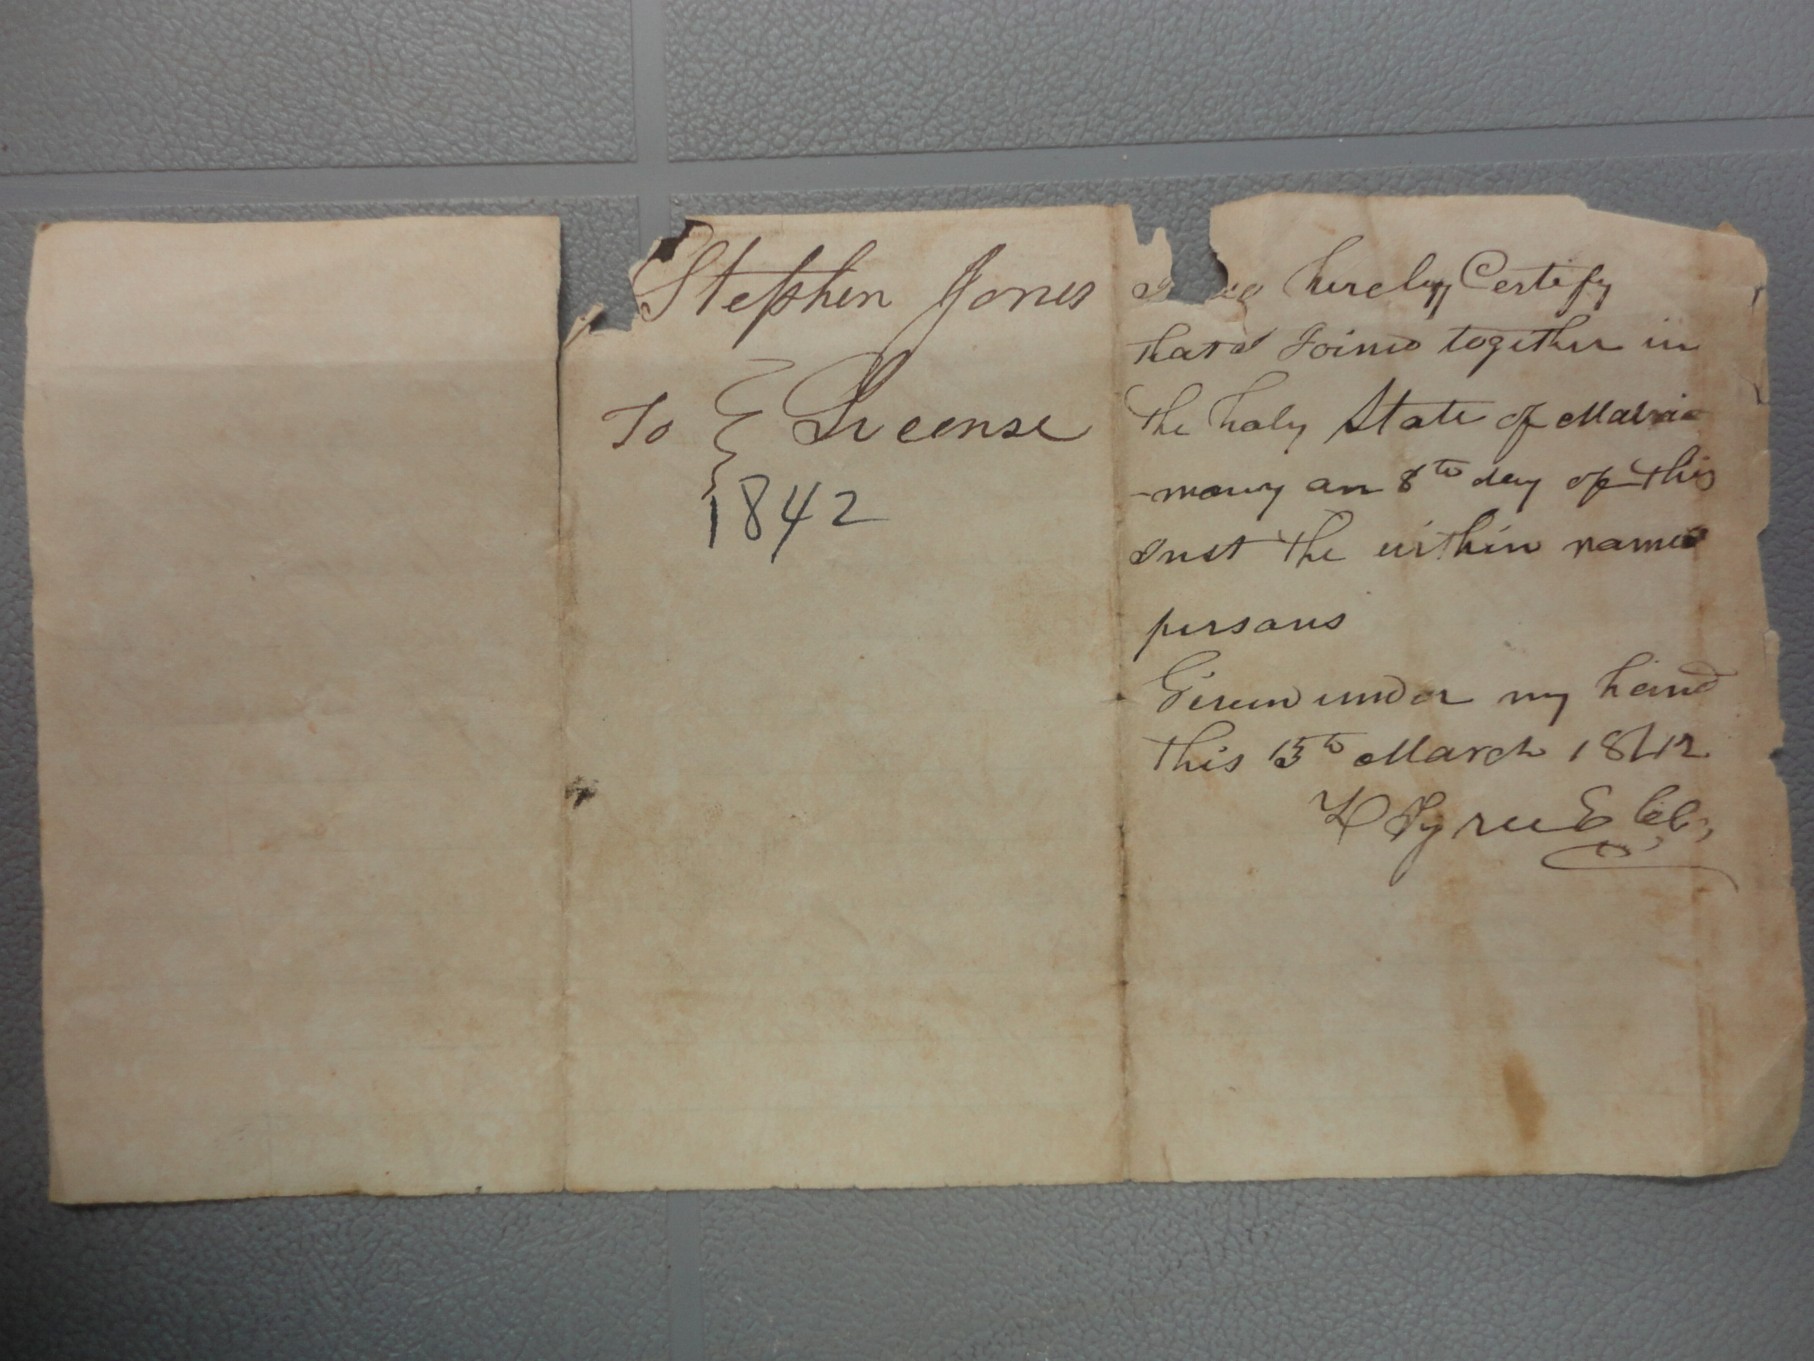 Stephen Jones
To License
1842
I do hereby Certify
that I Joined together in
the holy State of Matri
-mony on 8th day of this
Inst the within named
persons
Given under my hand
this 15th March 1842